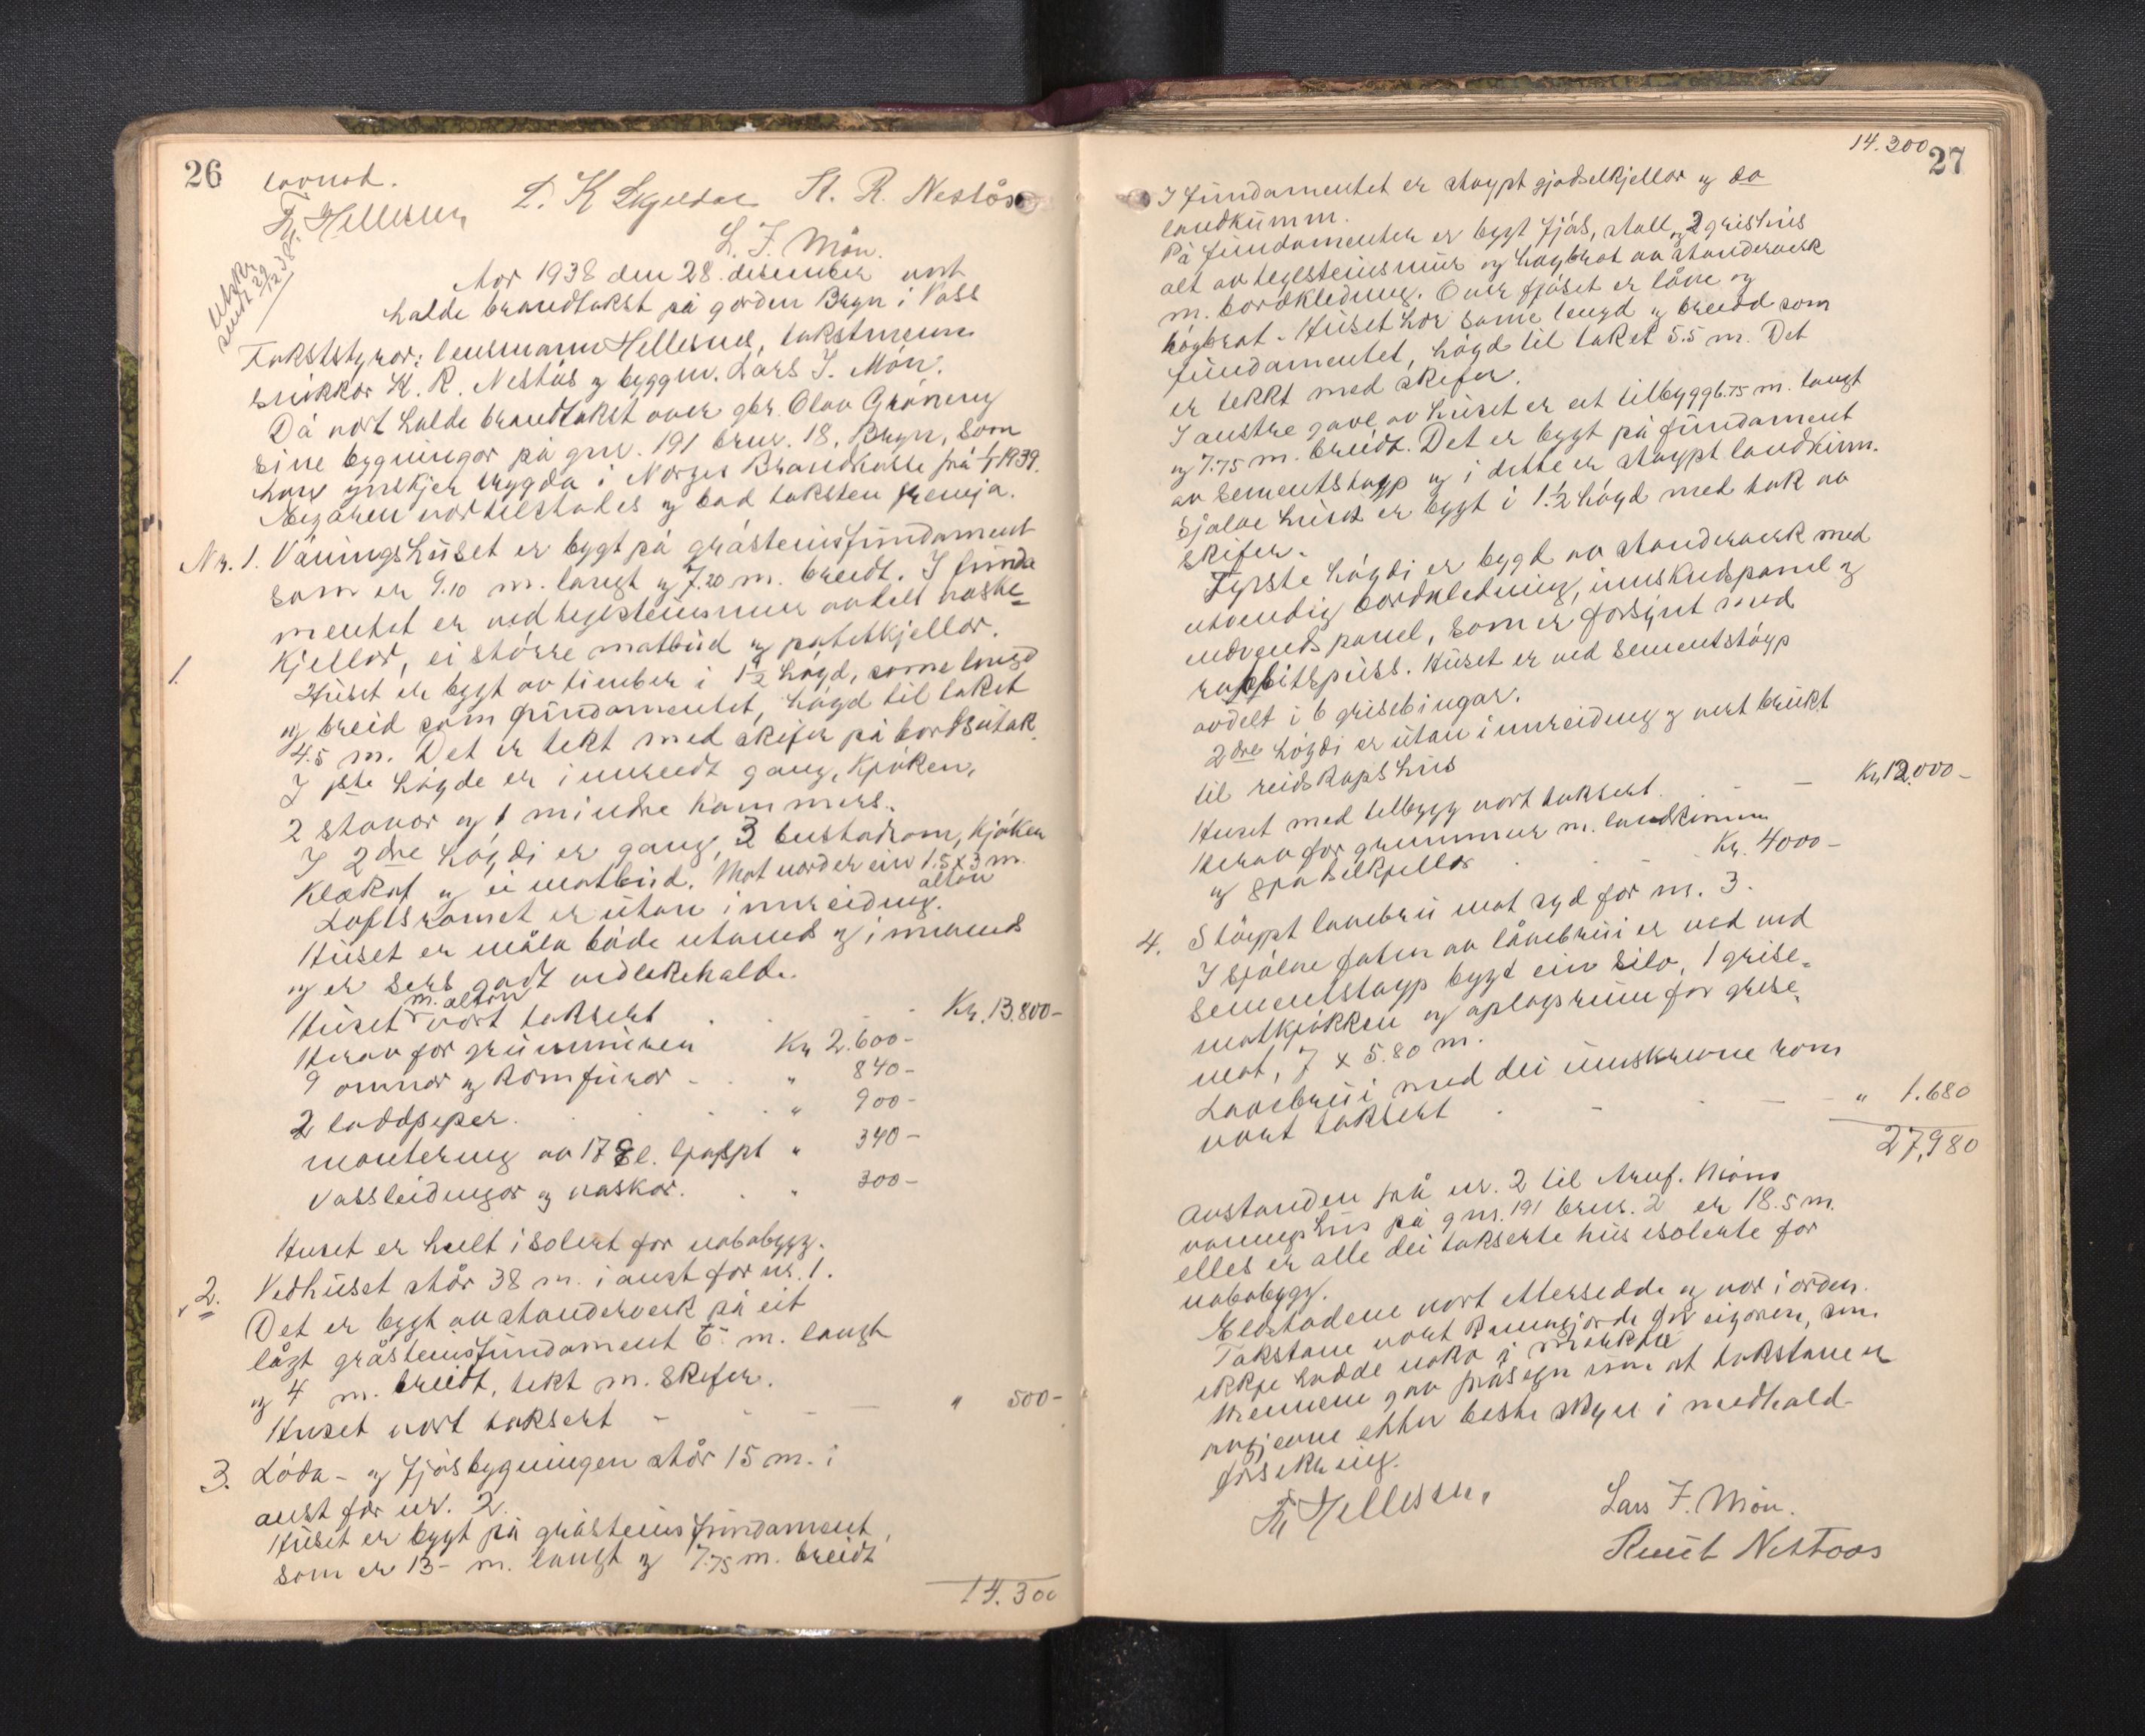 26
L. K. St. R. Nestås
Hellesnes
L. J. Møn.
Utskr.
sendt 29/12 38.
Aar 1938 den 28. desember vart
halde brandtakst på garden Bryn i Voss
Takststyrar: lensmann Hellesnes, takstmenn
snikkar K. R. Nestås og byggm. Lars J. Møn.
Då vart halde brandtakst over gbr. Olav Gråneng
sine bygningar på gnr. 191 brnr. 18, Bryn, som
han ynskjer trygda i Norges Brandkasse frå 1/1 1939.
Eigaren var tilstades og bad taksten fremja.
Nr. 1. Våningshuset er bygt på gråsteinsfundament
som er 9.10 m. langt og 7.20 m. breidt. I funda
mentet er ved teglsteinsmur avdelt vaske-
1. kjellar, ei større matbud og potetkjellar.
Huset er bygt av timber i 1½ høgd, same lengd
og breid som fundamentet, høgd til taket
4.5 m. Det er tekt med skifer på bordsutak.
I 1ste høgde er innreidt gang, kjøken,
2 stovor og 1 mindre kammers.
I 2dre høgdi er gang, 3 bustadrom, kjøken
og ei matbud. Mot nord er ein 1.5 x 3 m.
altan
Loftsromet er utan innreiding.
Huset er måla både utands og innands
og er sers godt vedlikehalde.
m. altan
Huset vart taksert . . . Kr. 13.800-
Herav for grunnmuren Kr 2.600-
9 omnar og komfurar - . " 840-
2 loddpiper. . . . " 900-
montering av 17 el. ljospkt " 340-
Vassleidingar og vaskar. . " 300-
Huset er heilt isolert for nabobygg.
2. Vedhuset står 38 m. i aust for nr. 1.
Det er bygt av standerverk på eit
lågt gråsteinsfundament 6 - m. langt
og 4 m. breidt, tekt m. skifer.
Huset vart taksert - - - — " 500-
3. Løda- og fjøsbygningen står 15 m. i
aust for nr. 2.
Huset er bygt på gråsteinsfundament,
som er 13- m. langt og 7.75 m. breidt
14.300
14.300
27
I fundamentet er støypt gjødselkjellar og do
landkumm.
På fundamentet er bygt fjøs, stall, og 2 grishus
alt av teglsteinsmur og høgbrot av standerverk
m. bordkledning. Over fjøset er låve og
høgbrot. Huset har same lengd og breidd som
fundamentet, høgd til taket 5.5 m. Det
er tekkt med skifer.
I austre gavl av huset er eit tilbygg 6.75 m. langt
og 7.75 m. breidt. Det er bygt på fundament
av sementstøyp og i dette er støypt landkum.
Sjølve huset er bygt i 1½ høgd med tak av
skifer.
Fyrste høgdi er bygd av standerverk med
utvendig bordkledning, innskudspanel og
indvends panel, som er forsynt med
rabbitspuss. Huset er ved sementstøyp
avdelt i 6 grisebingar.
2dre høgdi er utan innreiding og vert brukt
til reidskapshus
Huset med tilbygg vart taksert. - — Kr. 12.000-
Herav for grunnmur m. landkumm
og gjødselkjellar . . - Kr. 4000-
4. Støypt låvebru mot syd for nr. 3.
I sjølve foten av låvebrui er ved
sementstøyp bygt ein silo, 1 grise-
matkjøkken og oplagsrum for grise-
mat, 7 x 5.80 m.
Låvebrui med dei innskrevne rom
vart taksert . - - — - " 1.680
27,980
Avstanden frå nr. 2 til Arnf. Møns
våningshus på gnr. 191 brnr. 2 er 18.5 m.
elles er alle dei takserte hus isolerte for
nabobygg.
Eldstadene vart ettersedde og var i orden.
Takstane vart kunngjorde for eigaren, som
ikkje hadde noko å merkja
Mennene gav fråsegn um at takstane er
avgjevne etter beste skyn i medhald
forsikring.
Hellesnes Lars J. Møn.
Knut Nestaas